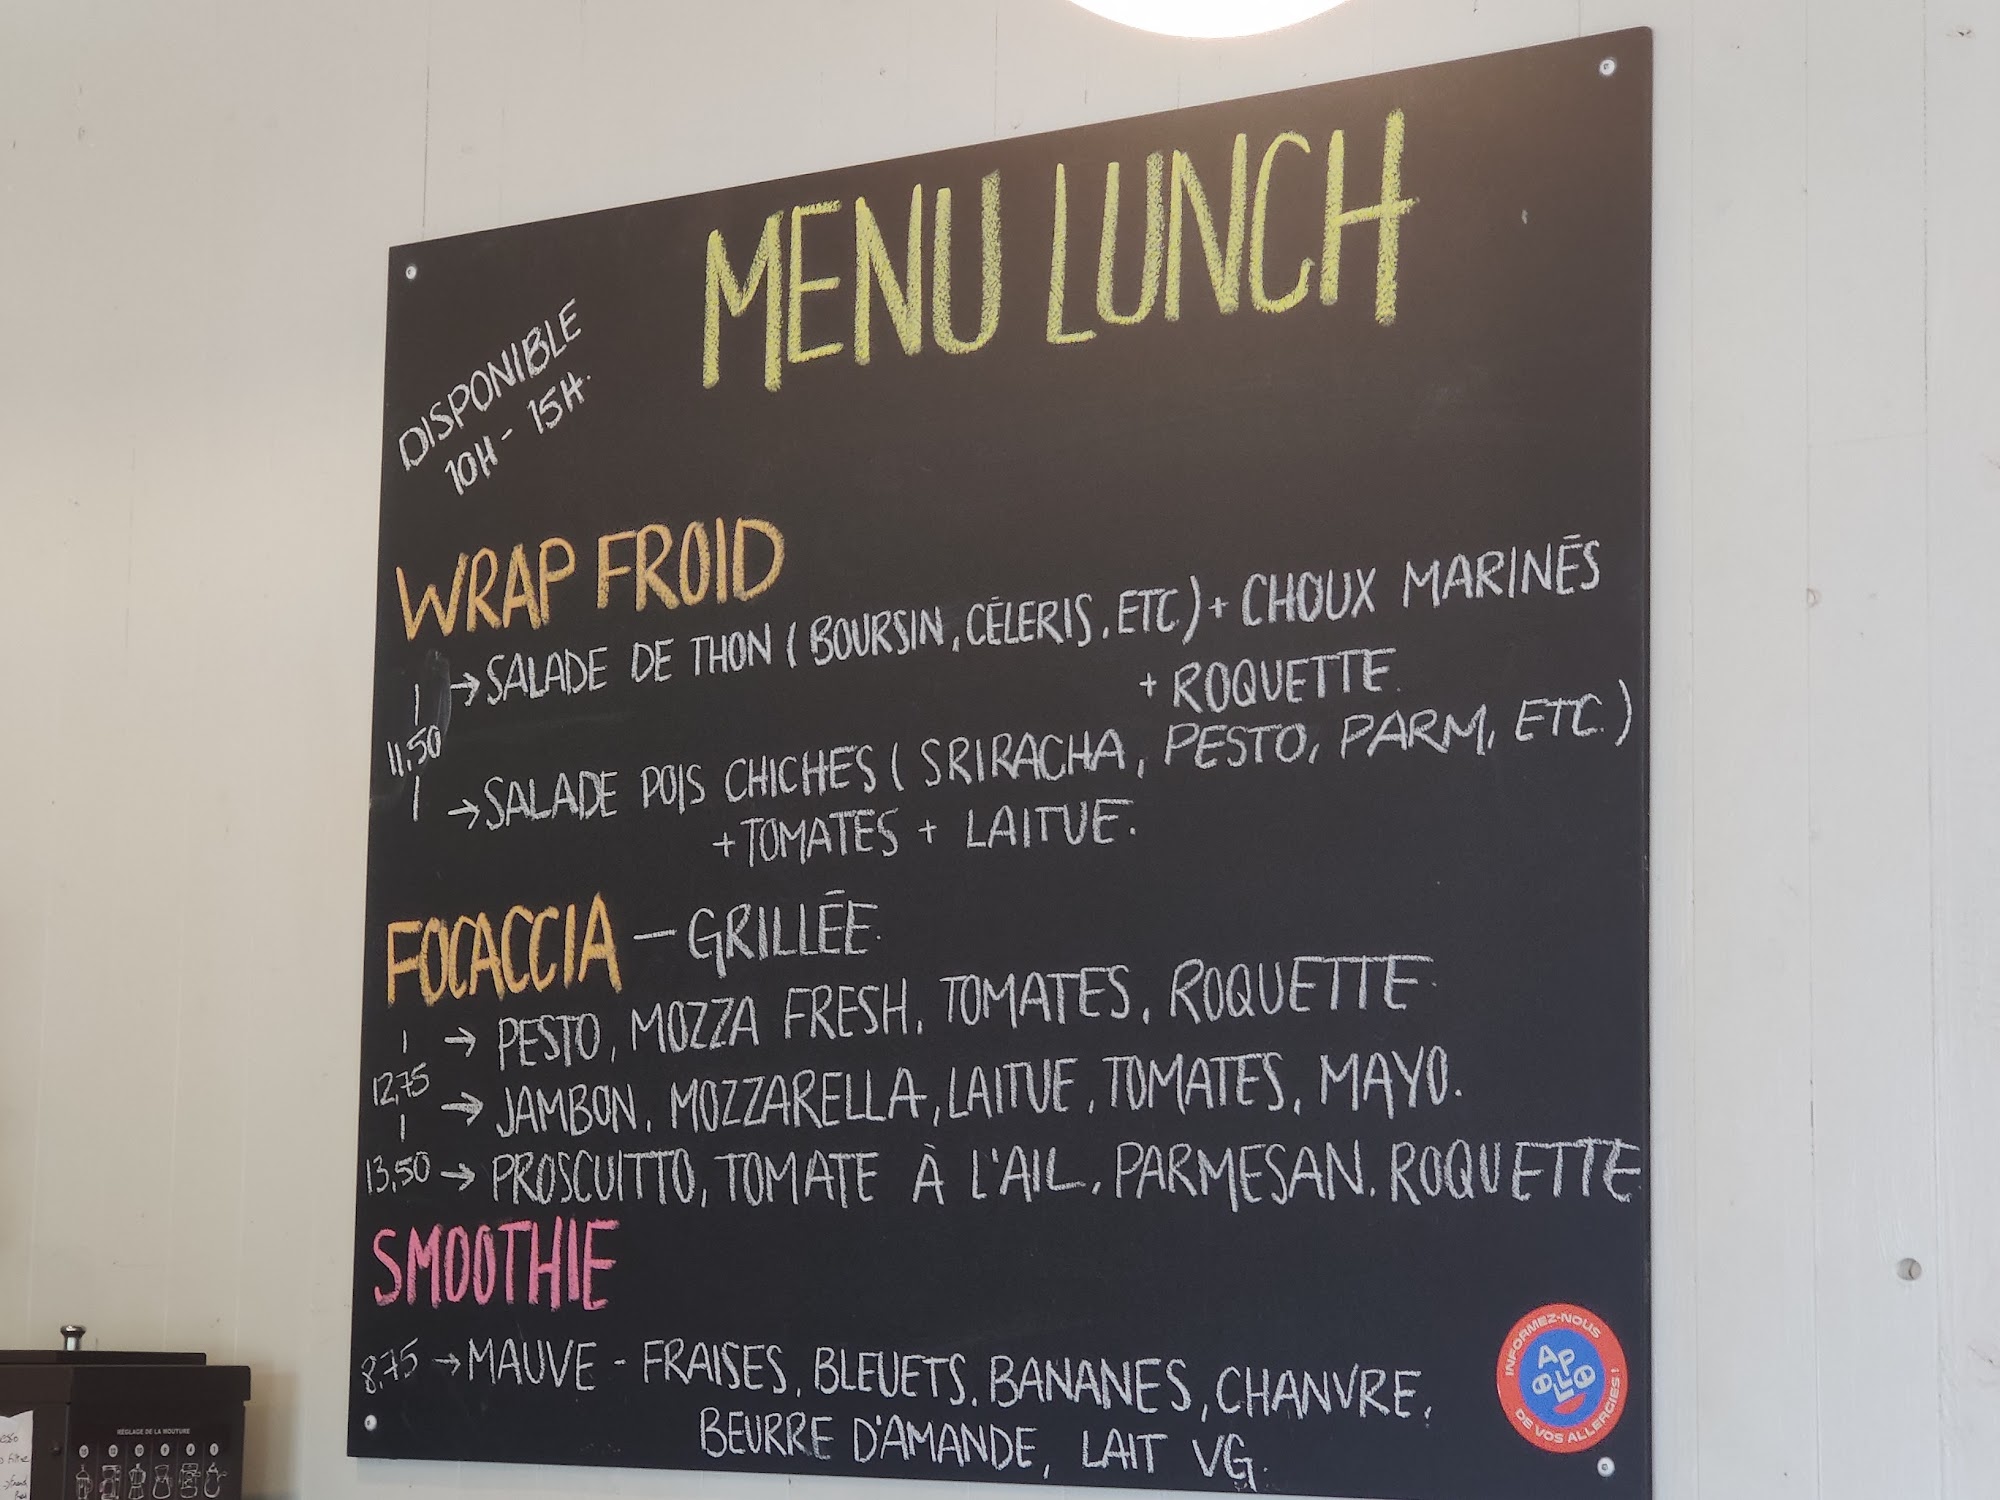 MENU LUNCH
DISPONIBLE
10H - 15H.
WRAP FROID
→ SALADE DE THON ( BOURSIN, CÉLERIS, ETC) + CHOUX MARINÉS
+ ROQUETTE.
11,50
→ SALADE POIS CHICHES ( SRIRACHA, PESTO, PARM, ETC.)
+ TOMATES + LAITUE.
FOCACCIA — GRILLÉE.
→ PESTO, MOZZA FRESH, TOMATES, ROQUETTE.
12,75
→ JAMBON, MOZZARELLA, LAITUE, TOMATES, MAYO.
13,50 → PROSCUITTO, TOMATE À L'AIL, PARMESAN, ROQUETTE
SMOOTHIE
8,75 → MAUVE - FRAISES, BLEUETS, BANANES, CHANVRE,
BEURRE D'AMANDE, LAIT VG.
INFORMEZ-NOUS
DE VOS ALLERGIES !
RÉGLAGE DE LA MOUTURE